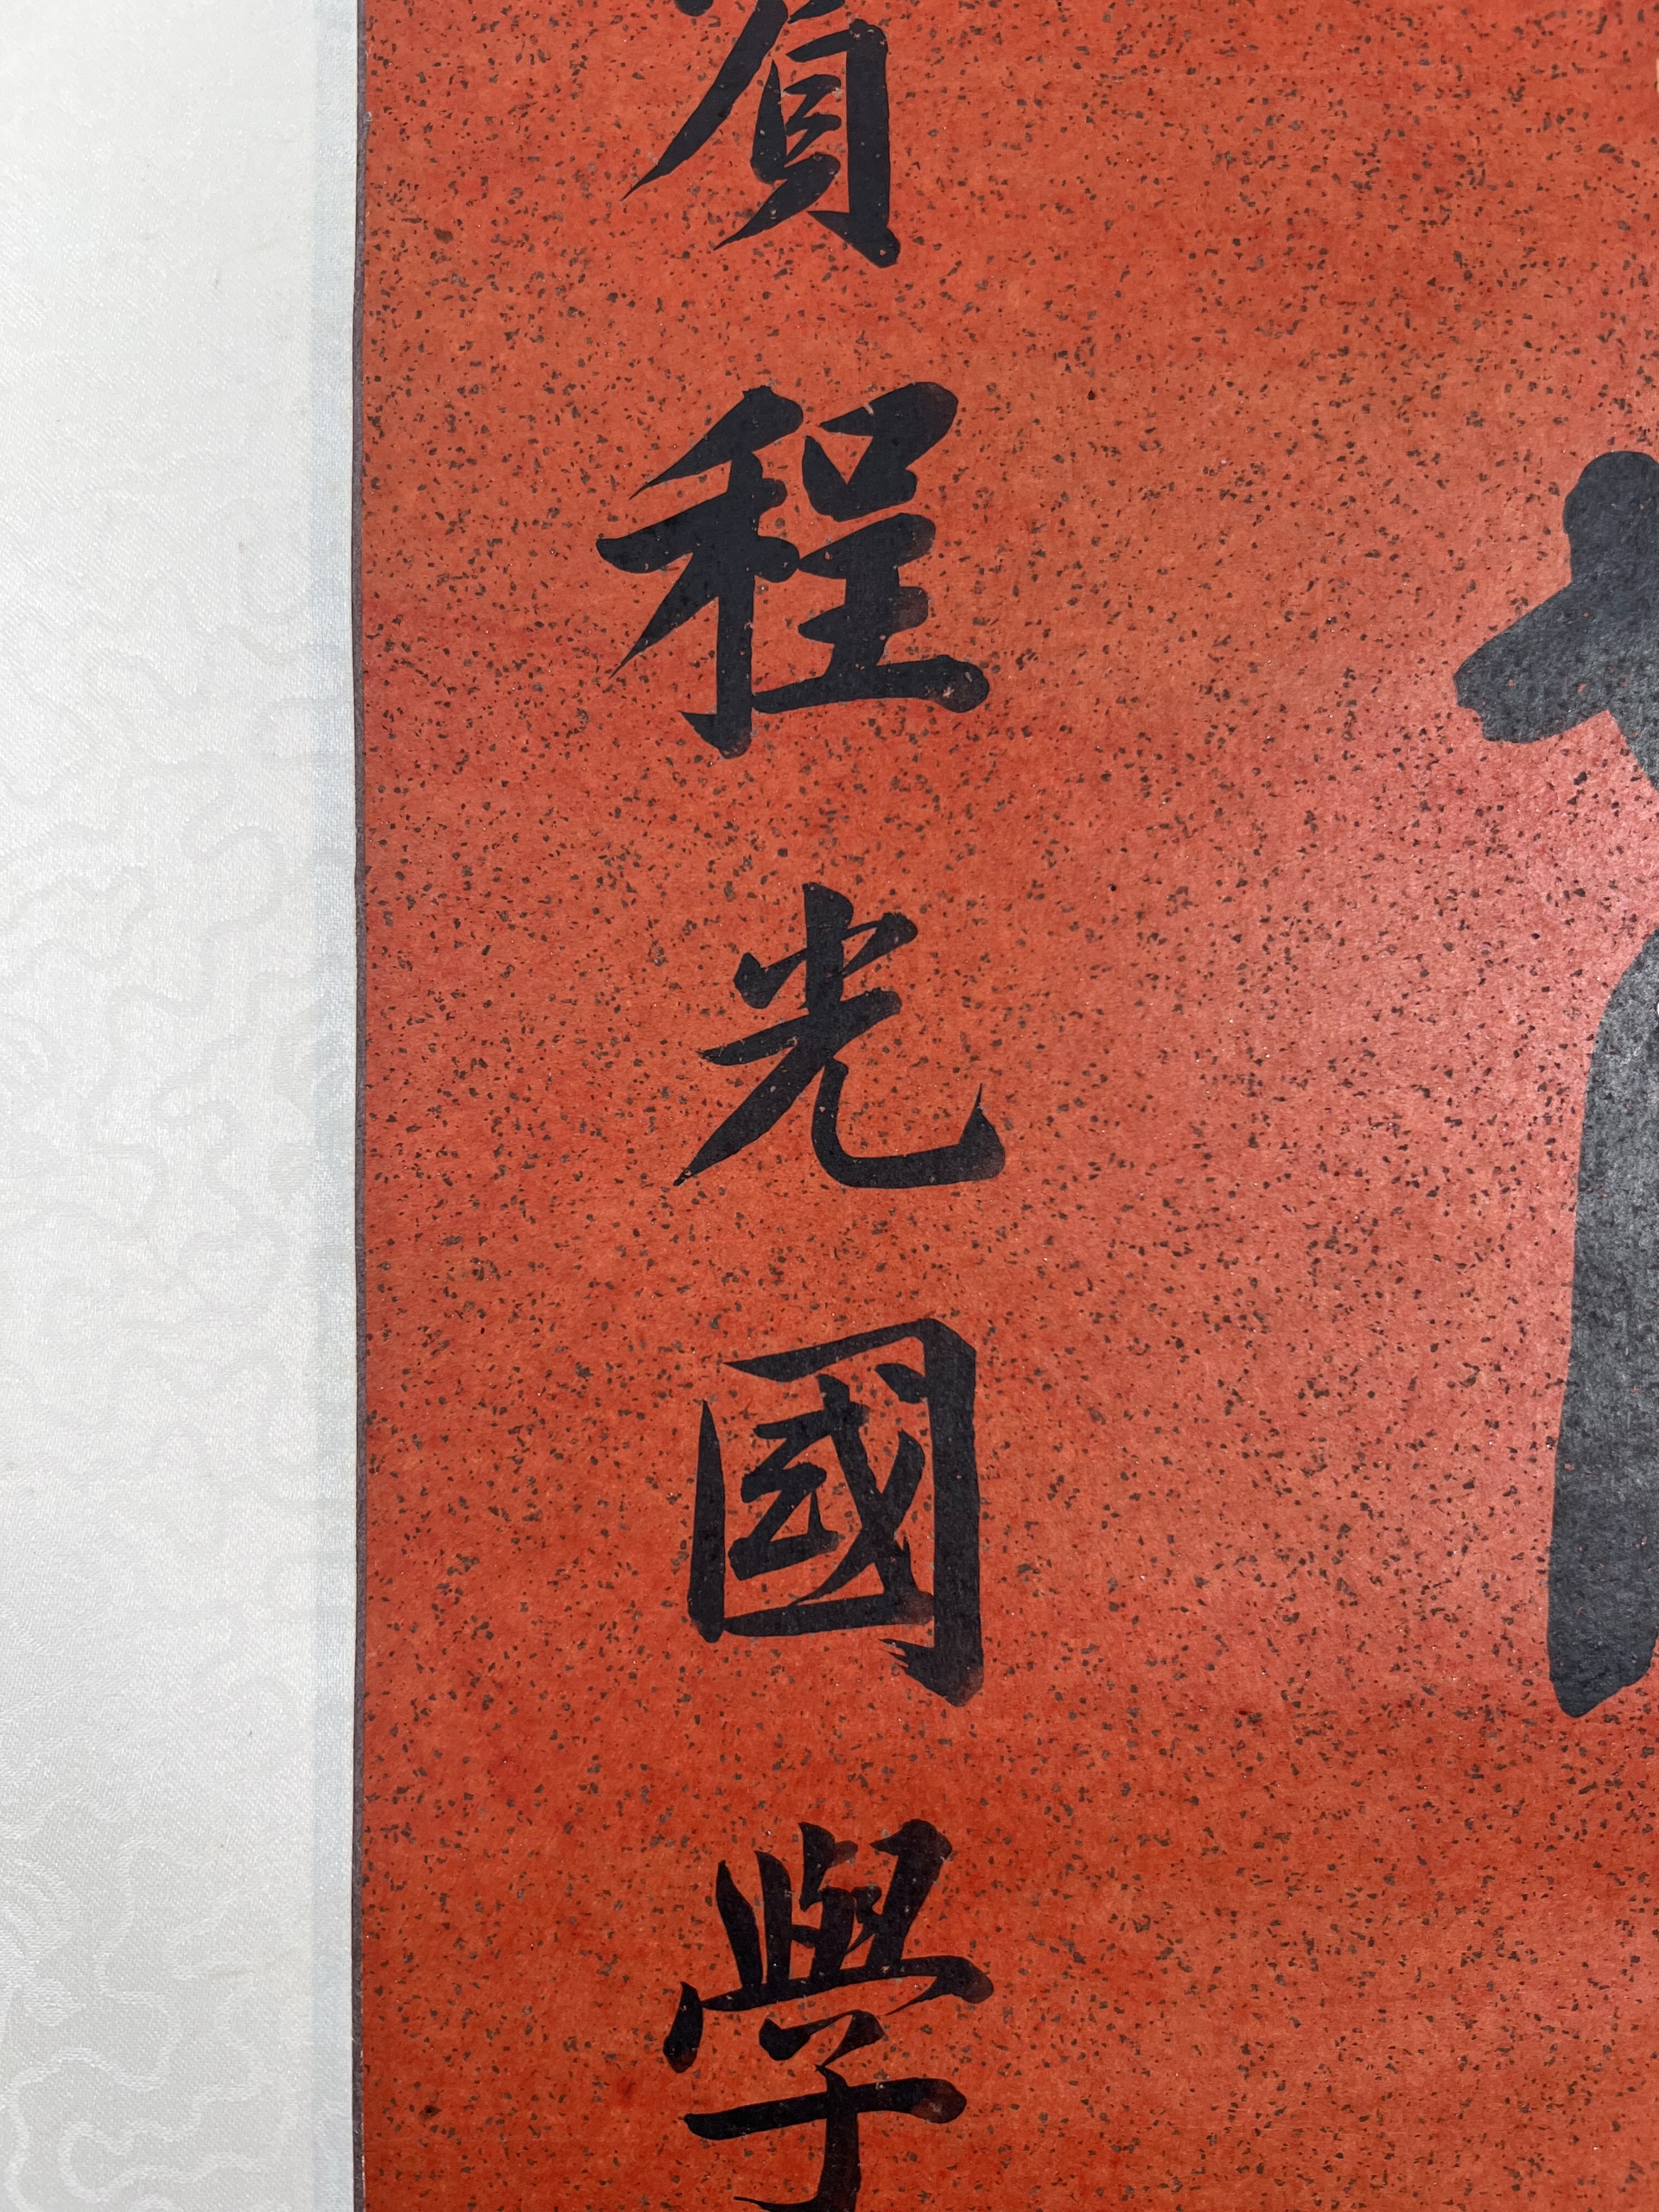 程光國學